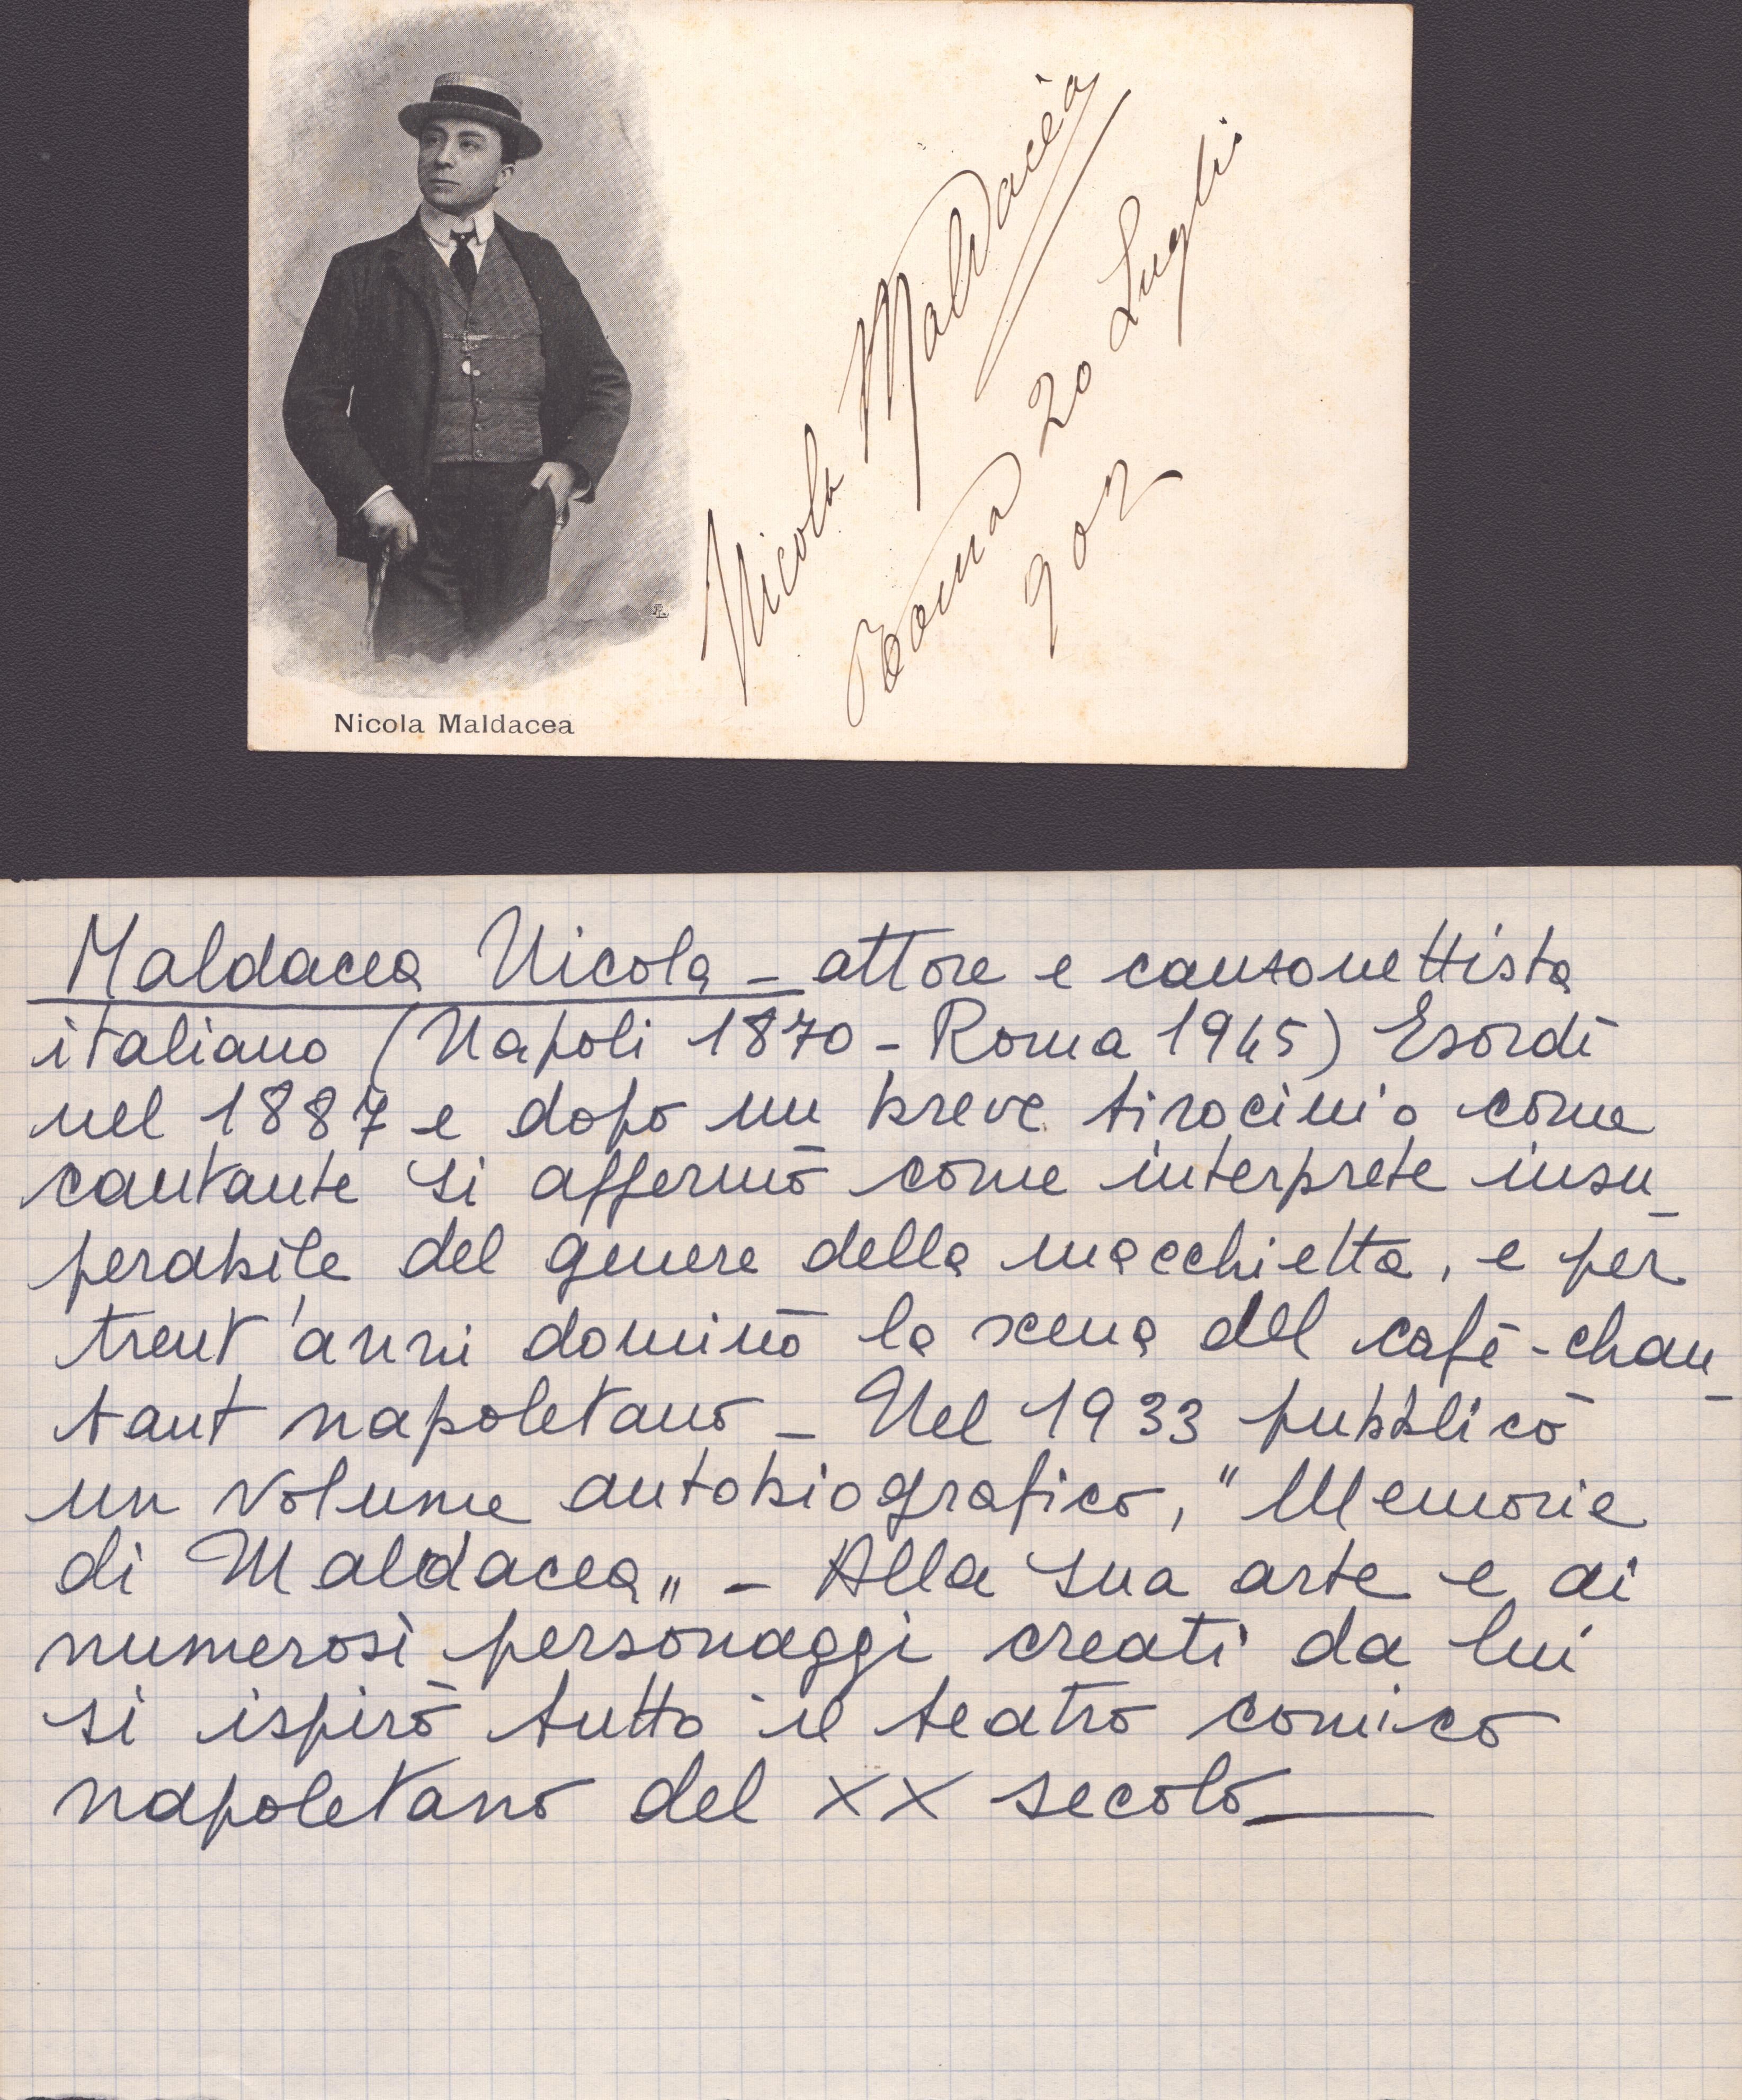 Nicola Maldacea
Roma 20 Luglio
902
Nicola Maldacea
Maldacea Nicola - attore e canzonettista
italiano (Napoli 1870 - Roma 1945) Esordì
nel 1887 e dopo un breve tirocinio come
cantante si affermò come interprete insu_
perabile del genere della macchietta, e per
trent'anni dominò la scena del cafè-chan_
tant napoletano - Nel 1933 pubblicò
un volume autobiografico, "Memorie
di Maldacea" - Alla sua arte e ai
numerosi personaggi creati da lui
si ispirò tutto il teatro comico
napoletano del XX secolo